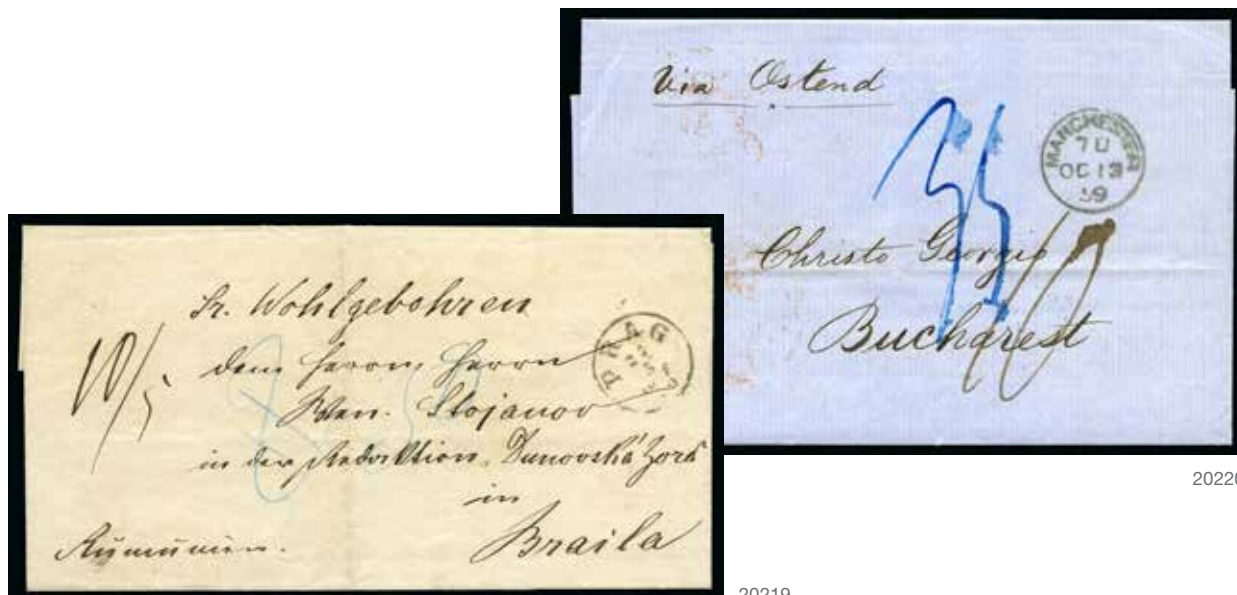 Via Ostend
MANCHESTER
7U
OC 13
59
Christo Georgie
Bucharest
20220
Sr. Wohlgebohren
PRAG
dem Herrn Herrn
Wen. Stojanov
in der Redaktion Dunovská Zora
in
Braila
Rumunien.
10/5
20219